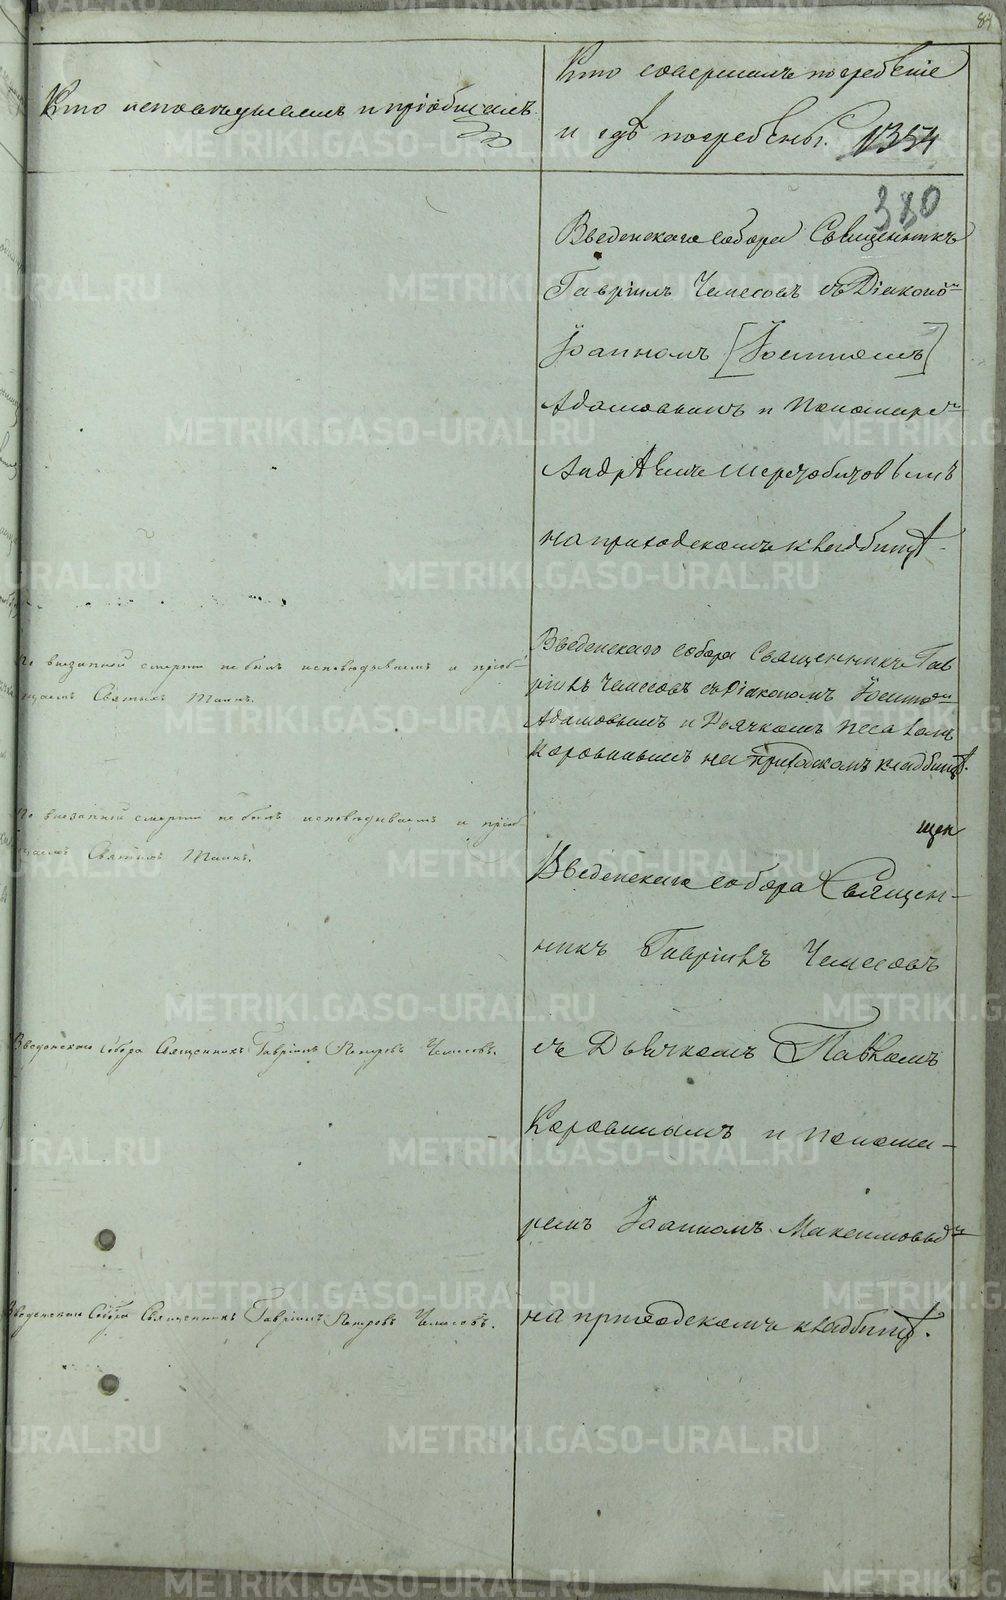 84
Кто исповѣдывалъ и пріобщалъ.
Кто совершалъ погребеніе
и гдѣ погребены. 1354
380
Введенскаго собора Священникъ
Гавріилъ Чемесовъ съ Діакономъ
Іоанномъ [Іоанномъ]
Адамовымъ и Пономаремъ
Андрѣемъ
на приходскомъ кладбищѣ.
По внезапной смерти не былъ исповѣдываемъ и пріоб-
щаемъ Святыхъ Таинъ.
Введенскаго собора Священникъ Гав
ріилъ Чемесовъ съ Діакономъ
Адамовымъ и Дьячкомъ Павломъ
Коровинымъ на приходскомъ кладбищѣ.
По внезапной смерти не былъ исповѣдываемъ и пріоб
щаемъ Святыхъ Таинъ.
щен
Введенскаго собора Священ-
никъ Гавріилъ Чемесовъ
съ Дьячкомъ Павломъ
Коровинымъ и Понома-
ремъ Іоанномъ Максимовымъ
на приходскомъ кладбищѣ.
Введенскаго Собора Священникъ Гавріилъ Петровъ Чемесовъ.
Введенскаго Собора Священникъ Гавріилъ Петровъ Чемесовъ.
METRIKI.GASO-URAL.RU